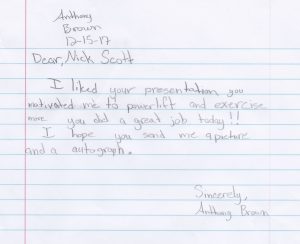 Anthony
Brown
12-15-17
Dear, Nick Scott
I liked your presentation you
motivated me to powerlift and exercise
more you did a great job today!!
I hope you send me a picture
and a autograph.
Sincerely,
Anthony Brown